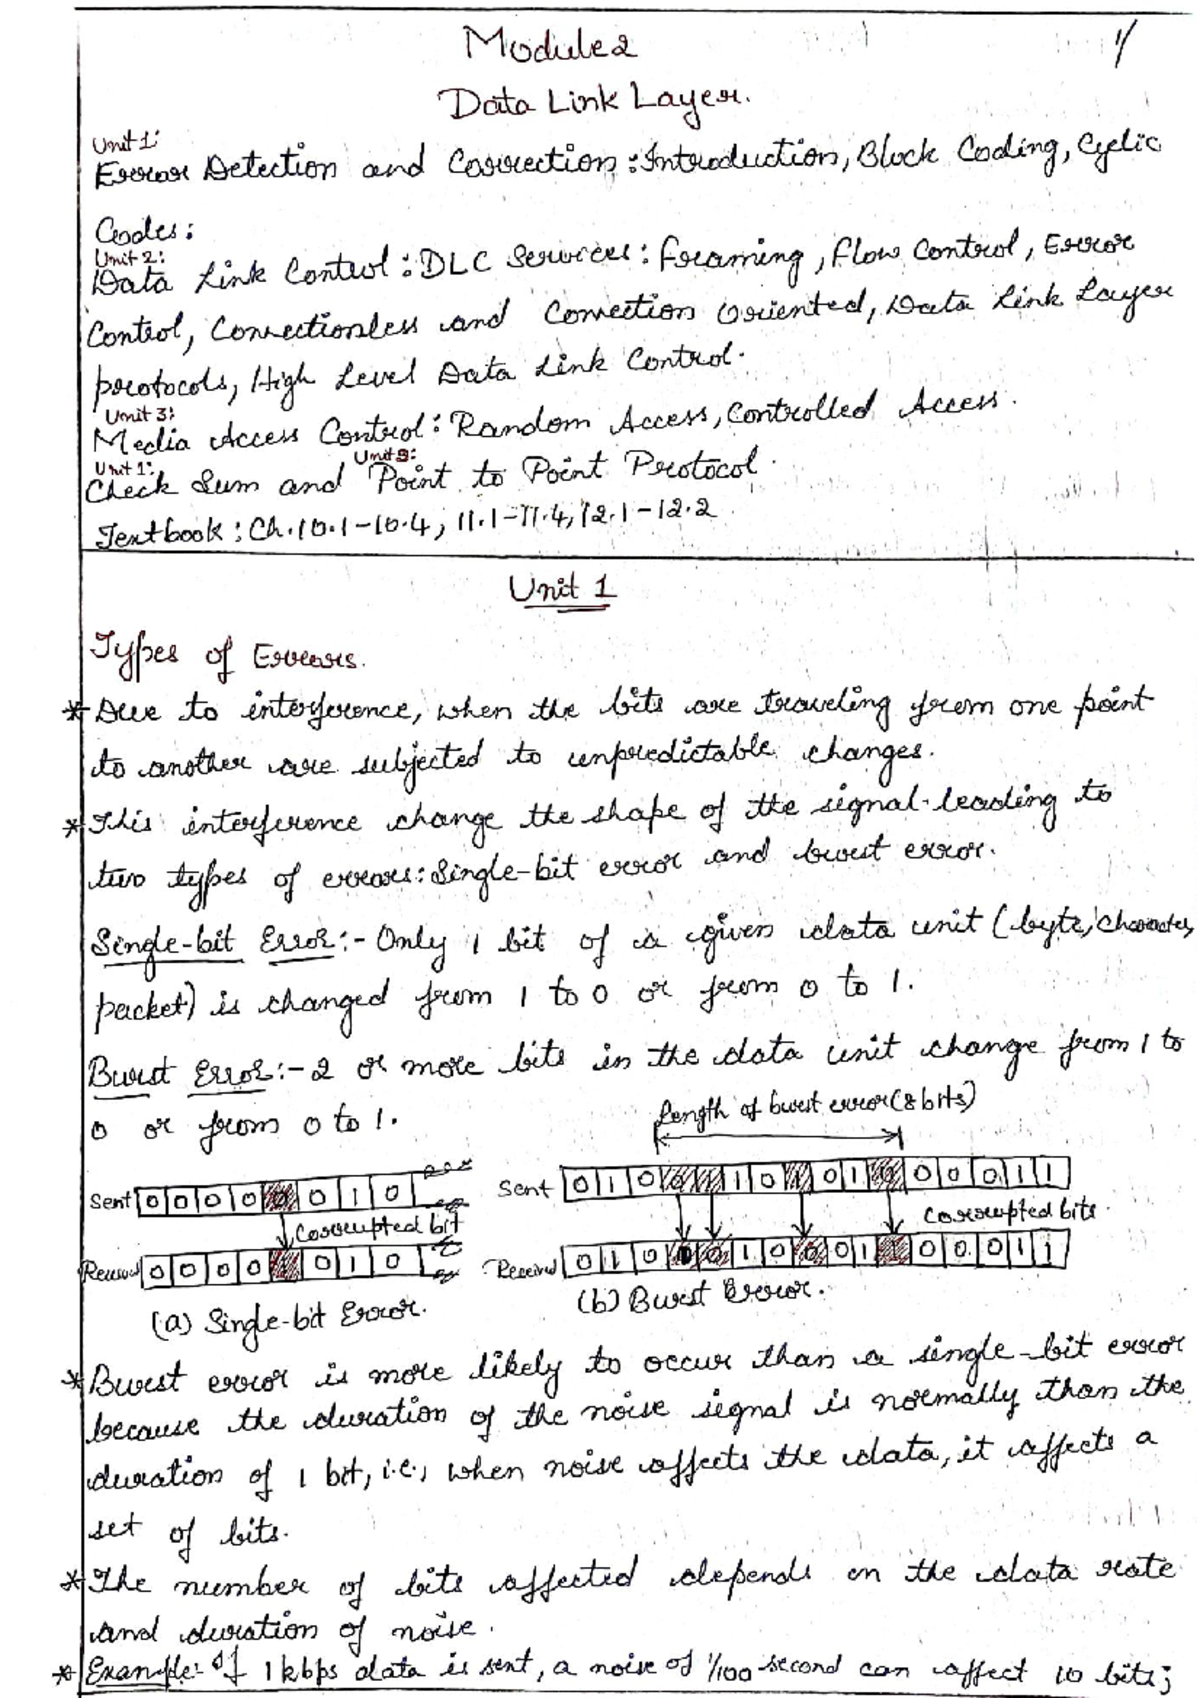 Module 2
1/
Data Link Layer.
Unit 1:
Error Detection and Correction: Introduction, Block Coding, Cyclic
Codes:
Unit 2:
Data Link Control: DLC Services: Framing, Flow Control, Error
Control, Connectionless and Connection Oriented, Data Link Layer
protocols, High Level Data Link Control.
Unit 3:
Media Access Control: Random Access, Controlled Access.
Unit 1: Unit 3:
Check Sum and Point to Point Protocol.
Textbook: Ch.10.1-10.4, 11.1-11.4, 12.1-12.2
Unit 1
Types of Errors.
* Due to interference, when the bits are traveling from one point
to another are subjected to unpredictable changes.
* This interference change the shape of the signal leading to
two types of errors: Single-bit error and burst error.
Single-bit Error:- Only 1 bit of a given data unit (byte, character,
packet) is changed from 1 to 0 or from 0 to 1.
Burst Error:- 2 or more bits in the data unit change from 1 to
0 or from 0 to 1.
Length of burst error (8 bits)
Sent 0 0 0 0 0 0 1 0
Corrupted bit
Received 0 0 0 0 1 0 1 0
(a) Single-bit Error.
Sent 0 1 0 0 1 1 0 1 0 1 0 0 0 0 1 1
Corrupted bits.
Received 0 1 0 0 1 0 0 0 1 1 0 0 0 1 1
(b) Burst Error.
* Burst error is more likely to occur than a single-bit error
because the duration of the noise signal is normally than the
duration of 1 bit, i.e., when noise affects the data, it affects a
set of bits.
* The number of bits affected depends on the data rate
and duration of noise.
* Example:- If 1kbps data is sent, a noise of 1/100 second can affect 10 bits;